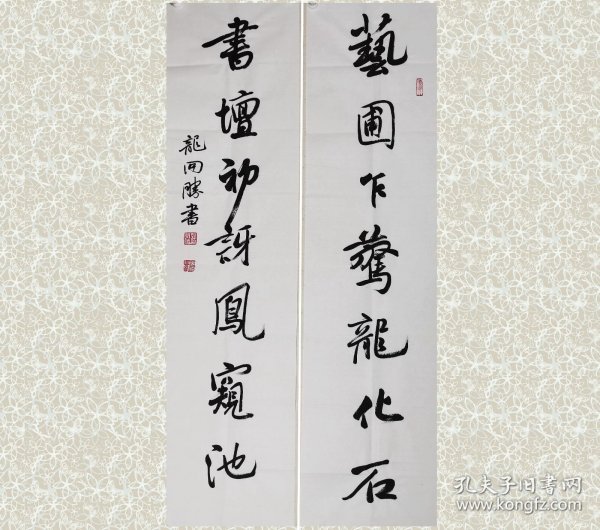 藝圃乍驚龍化石
書壇初訝鳳窺池
龍開勝書
孔夫子旧书网
www.kongfz.com